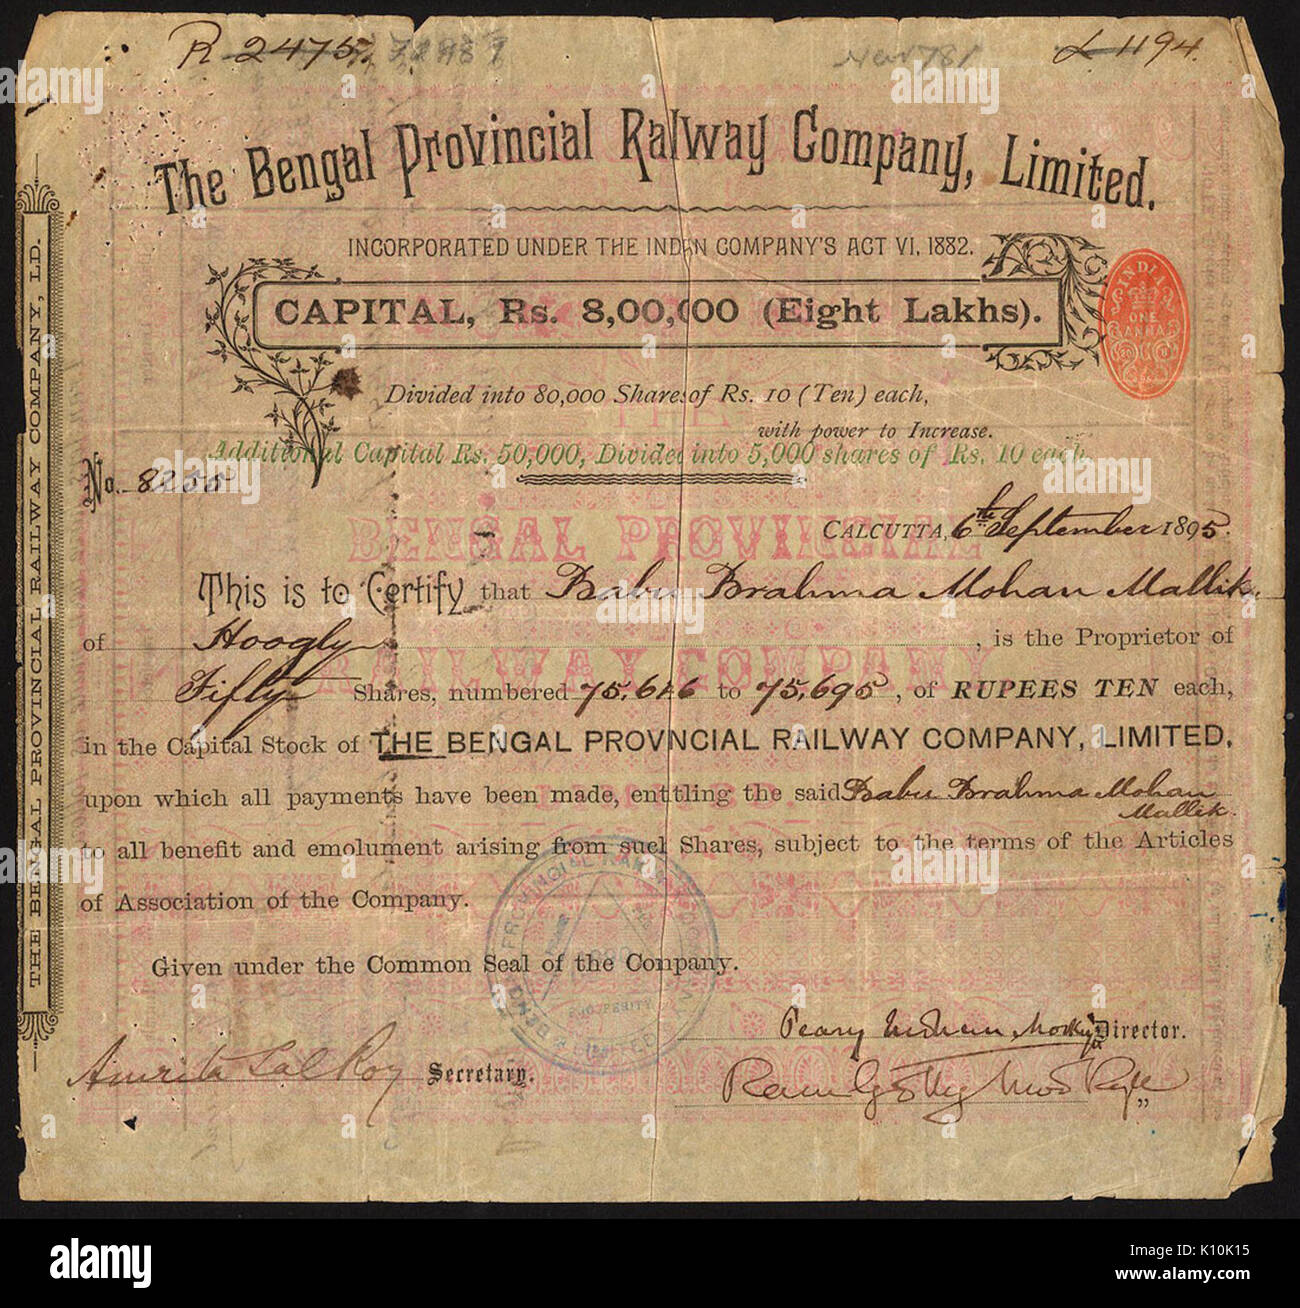 R 2475.
£ 1194.
The Bengal Provincial Railway Company, Limited.
INCORPORATED UNDER THE INDIAN COMPANY'S ACT VI, 1882.
CAPITAL, Rs. 8,00,000 (Eight Lakhs).
INDIA
ONE
ANNA
Divided into 80,000 Shares of Rs. 10 (Ten) each,
with power to Increase.
Additional Capital Rs. 50,000, Divided into 5,000 shares of Rs. 10 each.
No. 8255
CALCUTTA, 6th September 1895.
BENGAL PROVINCIAL
This is to Certify that Babu Brahma Mohan Mallik.
of Hoogly, is the Proprietor of
RAILWAY COMPANY
Fifty Shares, numbered 75,646 to 75,695, of RUPEES TEN each,
in the Capital Stock of THE BENGAL PROVINCIAL RAILWAY COMPANY, LIMITED,
upon which all payments have been made, entitling the said Babu Brahma Mohan
Mallik.
to all benefit and emolument arising from such Shares, subject to the terms of the Articles
of Association of the Company.
Given under the Common Seal of the Company.
Director.
Amrita Lal Roy Secretary.
"
THE BENGAL PROVINCIAL RAILWAY COMPANY, LD.
a alamy stock photo
alamy
K10K15
www.alamy.com